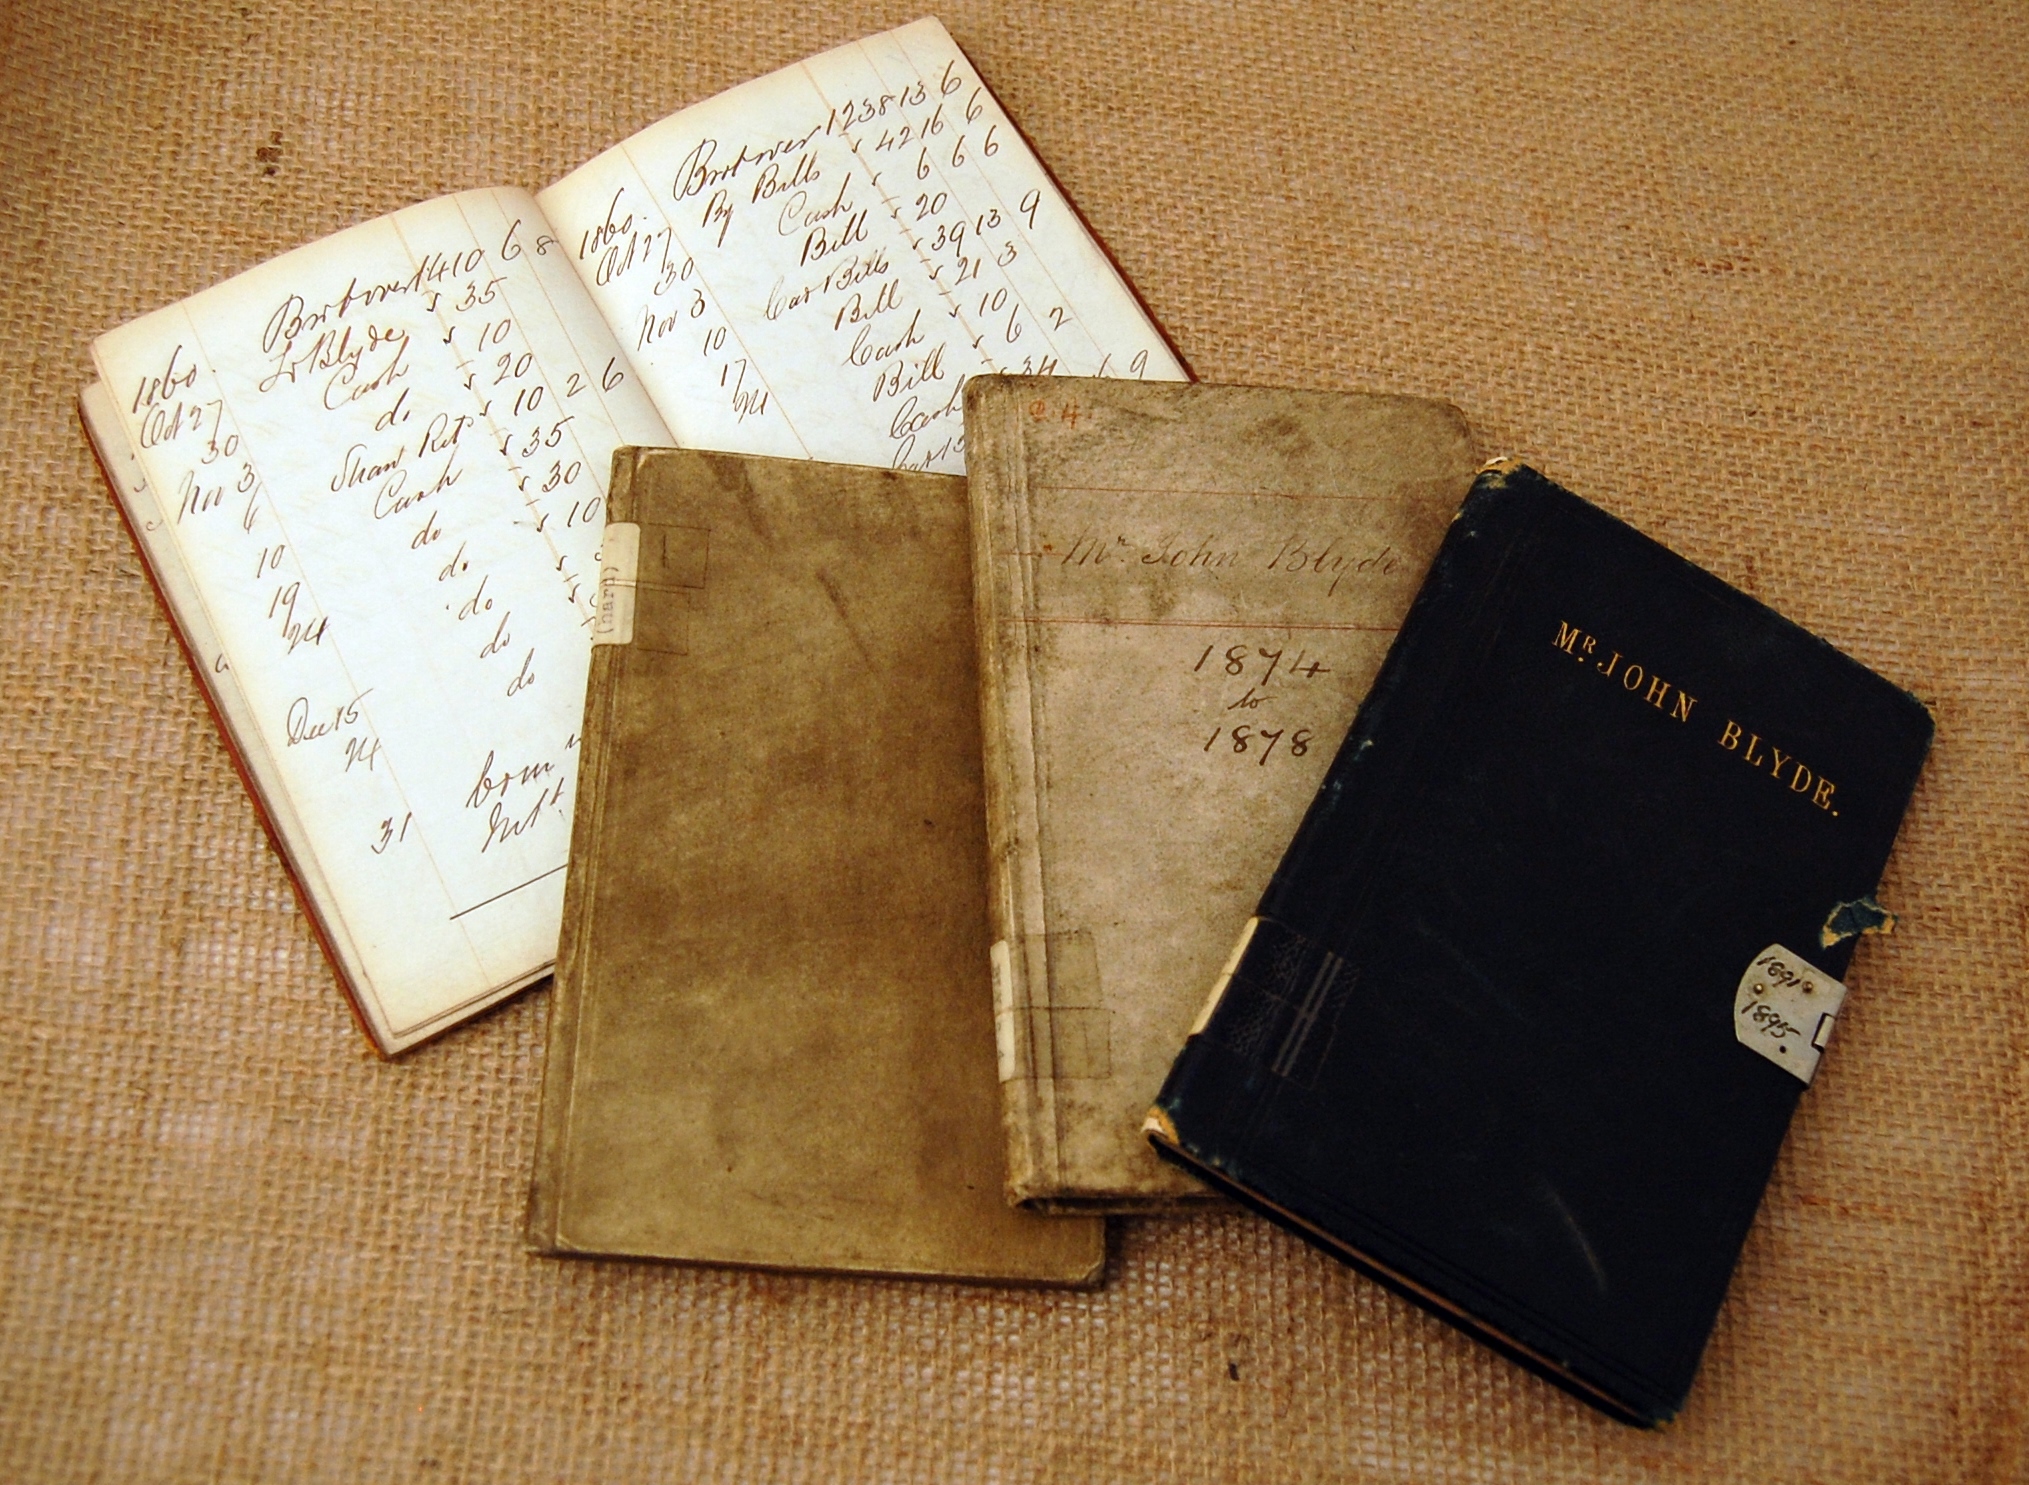 Brot over 1410 6 8
1860.
Oct 27 Jr Blyde 35
30 Cash 10
Nov 3 do 20
6 Shaw Ret 10 2 6
10 Cash 35
19 do 30
24 do 10
do
do
Dec 15 do
24 Com
31 Int
Brot over 1238 13 6
1860.
Oct 27 By Bills 42 16 6
30 Cash 6 6 6
Nov 3 Bill 20
10 Car Bills 39 13 9
17 Bill 21 3
24 Cash 10
Bill 6 2
Cash 34 6 9
(hard)
Mr. John Blyde
1874
to
1878
MR. JOHN BLYDE.
1891
1895.